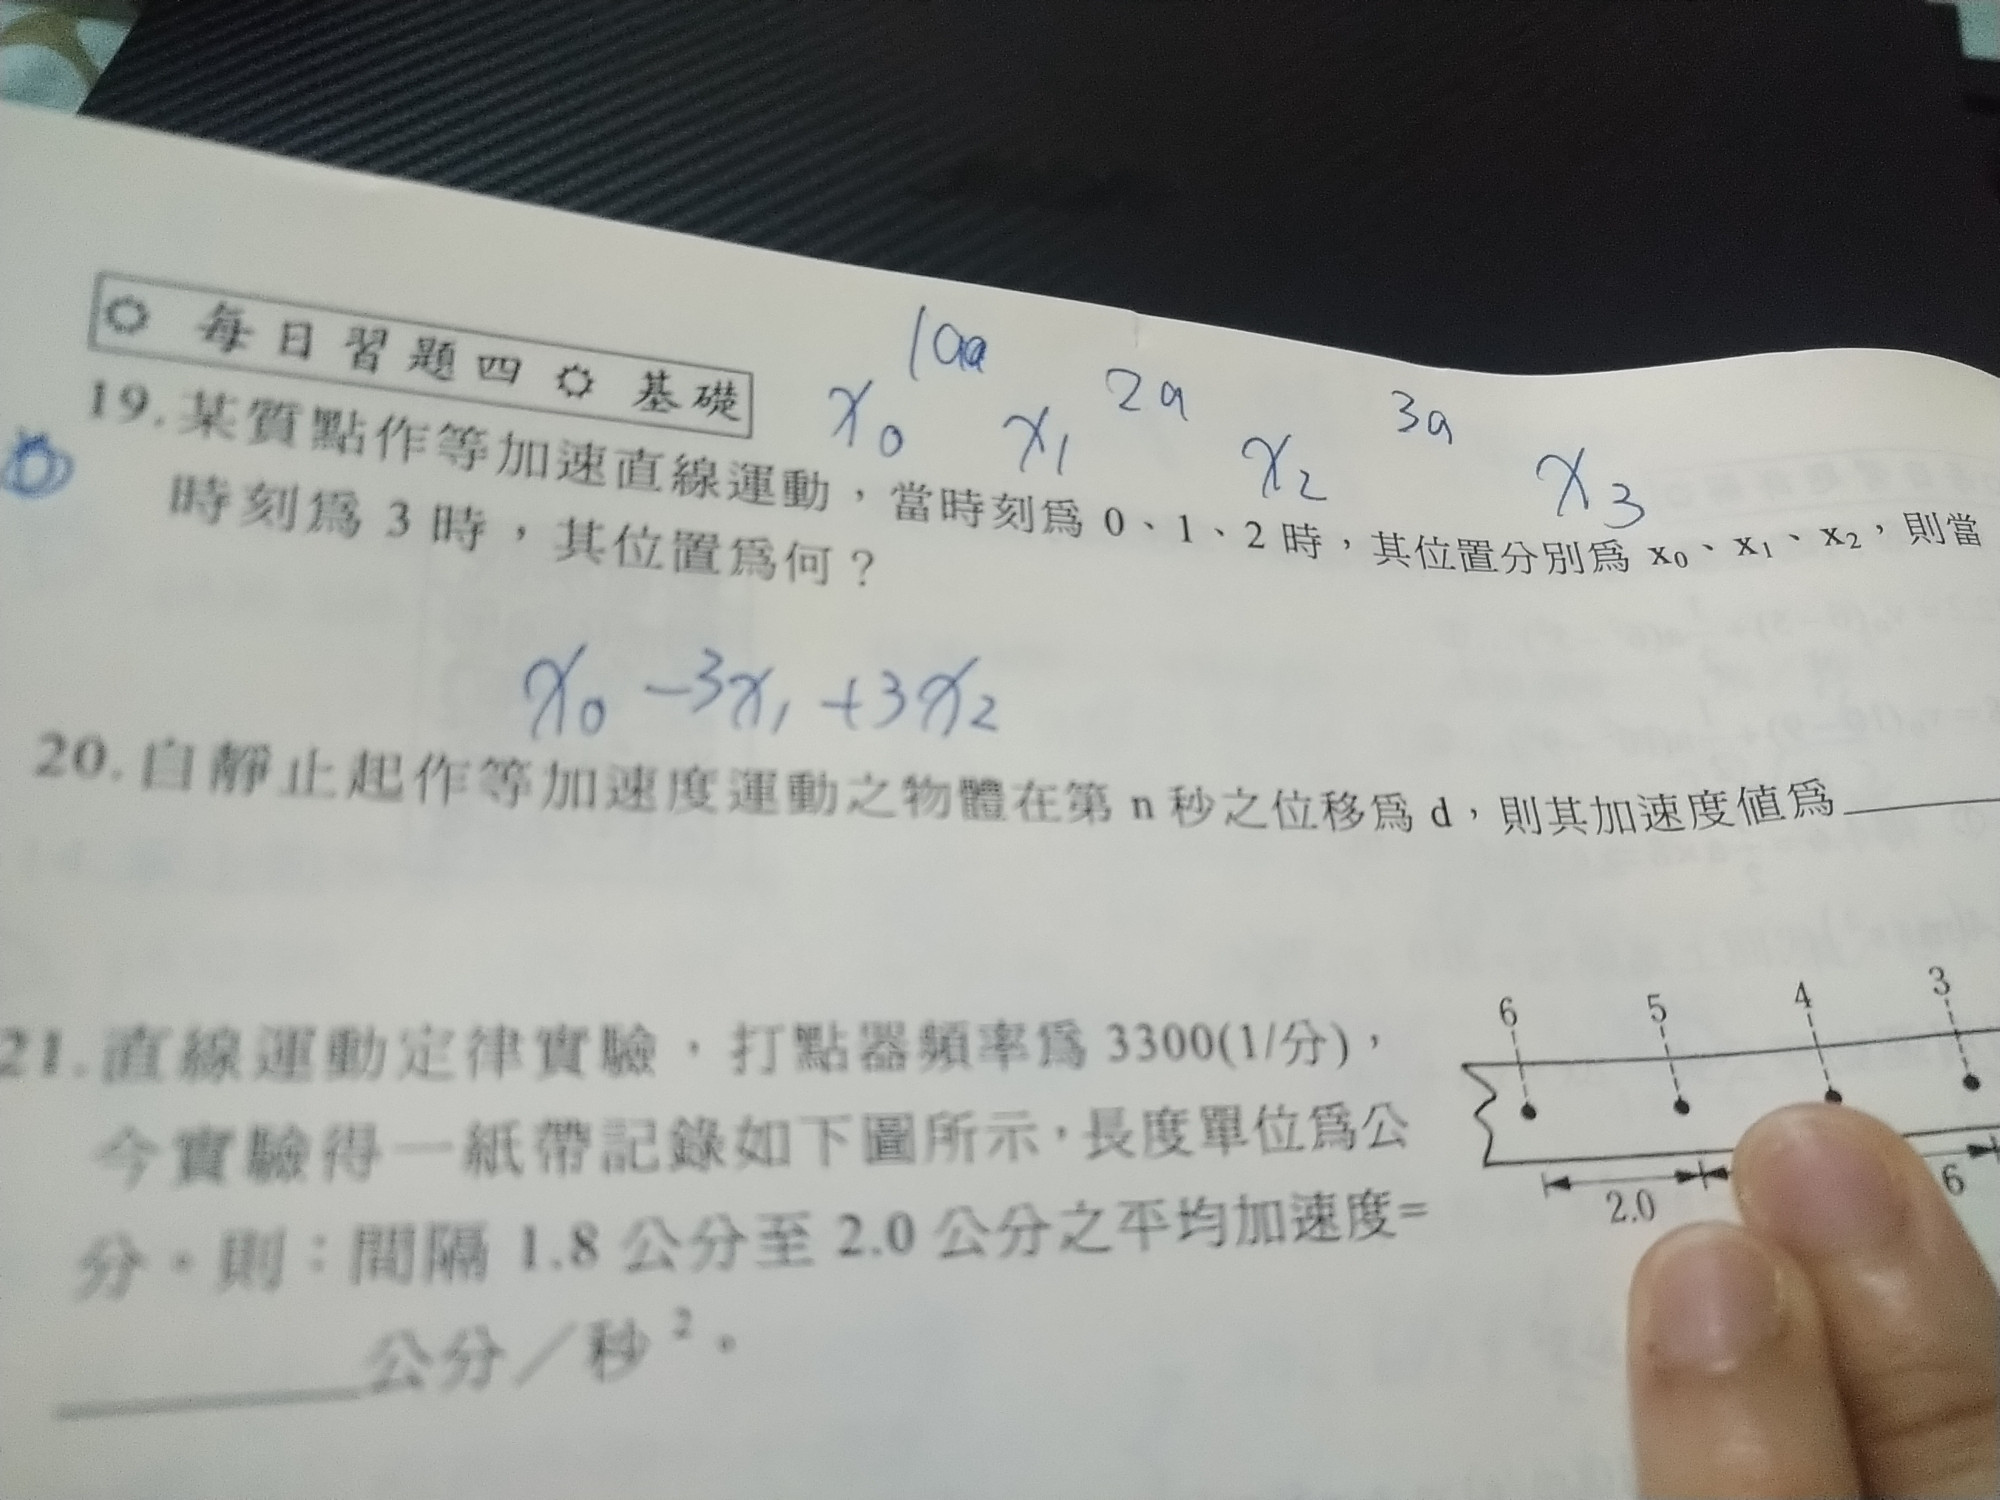 每日習題四 基礎
1aa 2a 3a
x₀ x₁ x₂ x₃
19.某質點作等加速直線運動，當時刻爲 0、1、2 時，其位置分別爲 x₀、x₁、x₂，則當
時刻爲 3 時，其位置爲何？
x₀ -3x₁ +3x₂
20.自靜止起作等加速度運動之物體在第 n 秒之位移爲 d，則其加速度値爲
21.直線運動定律實驗，打點器頻率爲 3300(1/分)，
今實驗得一紙帶記錄如下圖所示，長度單位爲公
分。則：間隔 1.8 公分至 2.0 公分之平均加速度=
公分／秒²。
6 5 4 3
2.0 6